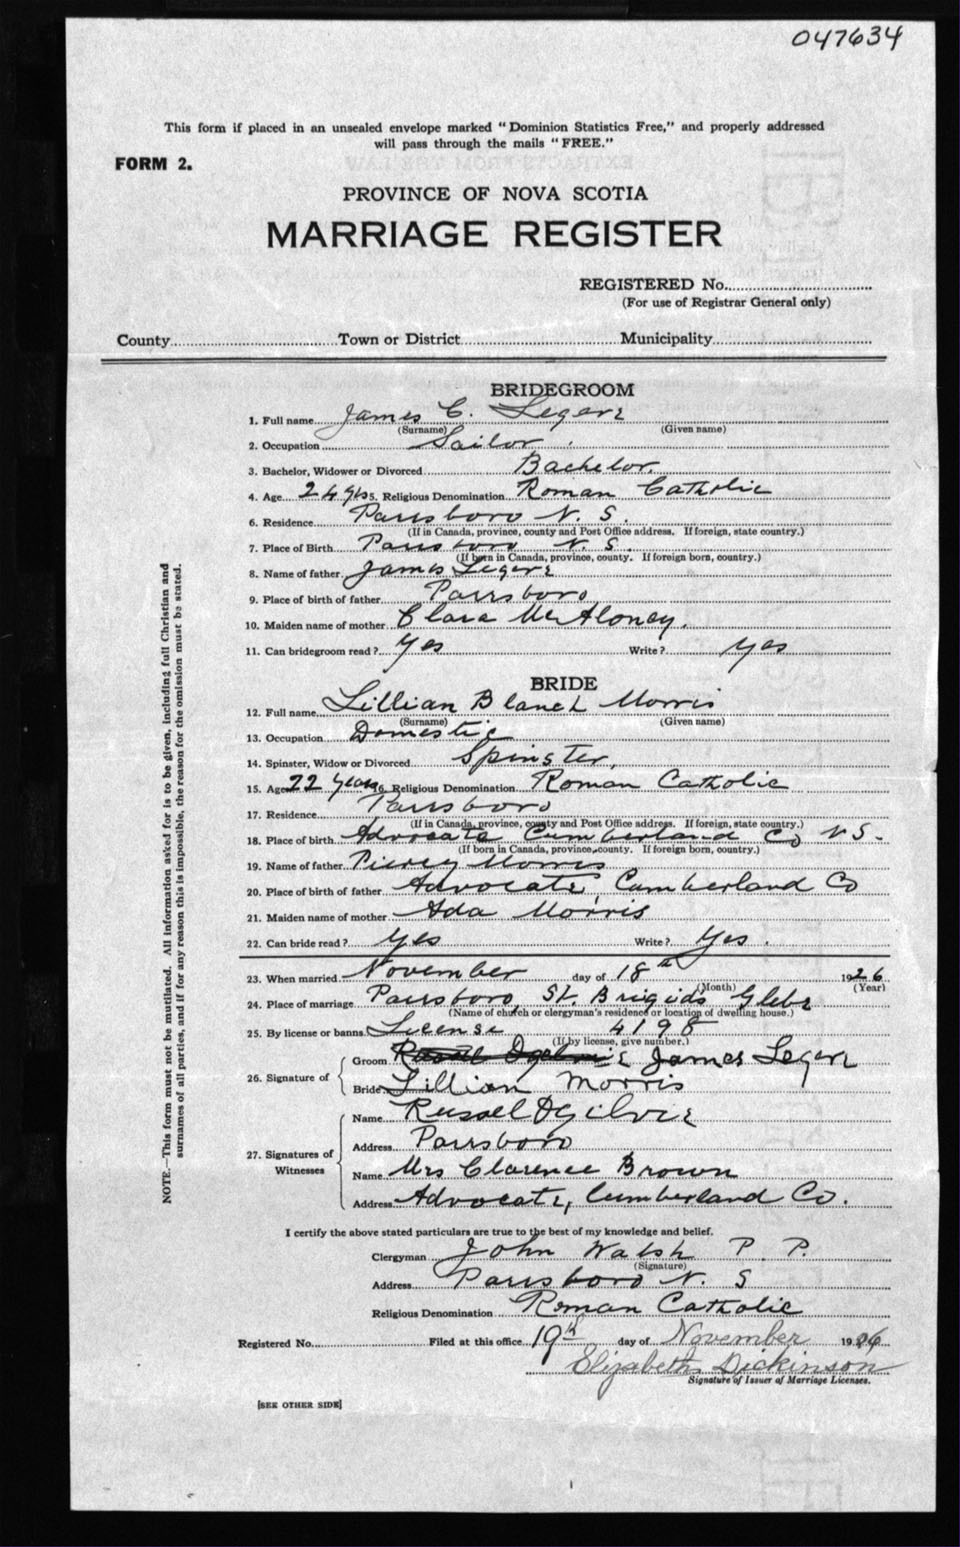 047634
This form if placed in an unsealed envelope marked "Dominion Statistics Free," and properly addressed
will pass through the mails "FREE."
FORM 2.
PROVINCE OF NOVA SCOTIA
MARRIAGE REGISTER
REGISTERED No.
(For use of Registrar General only)
County Town or District Municipality
BRIDEGROOM
1. Full name James C. Legere
(Surname) (Given name)
2. Occupation Sailor
3. Bachelor, Widower or Divorced Bachelor.
4. Age 24 yrs 5. Religious Denomination Roman Catholic
6. Residence Parrsboro N. S.
(If in Canada, province, county and Post Office address. If foreign, state country.)
7. Place of Birth Parrsboro N. S.
(If born in Canada, province, county. If foreign born, country.)
8. Name of father James Legere
9. Place of birth of father Parrsboro
10. Maiden name of mother Clara McAloney.
11. Can bridegroom read? Yes Write? Yes
BRIDE
12. Full name Lillian Blanch Morris
(Surname) (Given name)
13. Occupation Domestic
14. Spinster, Widow or Divorced Spinster.
15. Age 22 years 16. Religious Denomination Roman Catholic
17. Residence Parrsboro
(If in Canada, province, county and Post Office address. If foreign, state country.)
18. Place of birth Advocate Cumberland Co N S.
(If born in Canada, province, county. If foreign born, country.)
19. Name of father Morris
20. Place of birth of father Advocate, Cumberland Co
21. Maiden name of mother Ada Morris
22. Can bride read? Yes Write? Yes.
23. When married November day of 18th 1926
(Month) (Year)
24. Place of marriage Parrsboro, St. Brigids Glebe
(Name of church or clergyman's residence or location of dwelling house.)
25. By license or banns License 4198
(If by license, give number.)
26. Signature of
Groom James Legere
Bride Lillian Morris
27. Signatures of Witnesses
Name Russel Ogilvie
Address Parrsboro
Name Mrs Clarence Brown
Address Advocate, Cumberland Co.
I certify the above stated particulars are true to the best of my knowledge and belief.
Clergyman John Walsh P. P.
(Signature)
Address Parrsboro N. S
Religious Denomination Roman Catholic
Registered No. Filed at this office 19th day of November 1926
Elizabeth Dickinson
Signature of Issuer of Marriage Licenses.
[SEE OTHER SIDE]
NOTE.—This form must not be mutilated. All information asked for is to be given, including full Christian and
surnames of all parties, and if for any reason this is impossible, the reason for the omission must be stated.